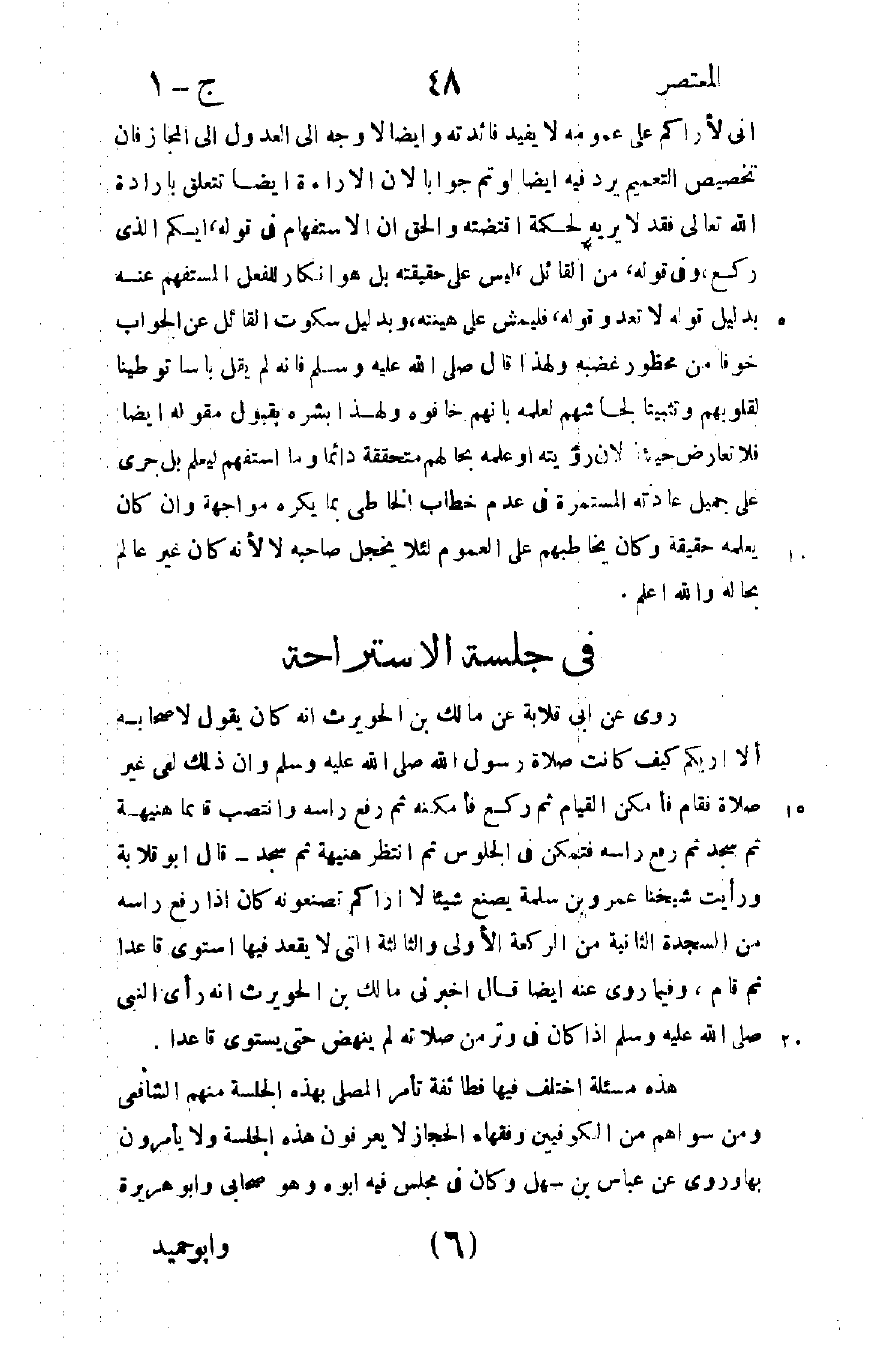 المعتصر ٤٨ ج – ١
انى لأراكم على عمومه لا يفيد فائدته وايضا لا وجه الى العدول الى المجاز فان
تخصيص التعميم يرد فيه ايضا لو تم جوابا لان الاراءة ايضا تتعلق بارادة
الله تعالى فقد لا يريه لحكمة اقتضته والحق ان الاستفهام فى قوله، ايكم الذى
ركع، وفى قوله، من القائل، ليس على حقيقته بل هو انكار للفعل المستفهم عنه
بدليل قوله لا تعد وقوله، فليمش على هينته، وبدليل سكوت القائل عن الجواب ٥
خوفا من محظور غضبه ولهذا قال صلى الله عليه وسلم فانه لم يقل باسا توطينا
لقلوبهم وتثبيتا لجاشهم لعلمه بانهم خافوه ولهذا بشره بقبول مقوله ايضا
فلا تعارض حينئذ لان رؤيته او علمه بحالهم متحققة دائما وما استفهم ليعلم بل جرى
على جميل عادته المستمرة فى عدم خطاب الخاطى بما يكره مواجهة وان كان
يعلمه حقيقة وكان يخاطبهم على العموم لئلا يخجل صاحبه لا لأنه كان غير عالم ١٠
بحاله والله اعلم .
فى جلسة الاستراحة
روى عن ابى قلابة عن مالك بن الحويرث انه كان يقول لاصحابه
ألا اريكم كيف كانت صلاة رسول الله صلى الله عليه وسلم وان ذلك لفى غير
صلاة فقام فأمكن القيام ثم ركع فأمكنه ثم رفع راسه وانتصب قائما هنيهة ١٥
ثم سجد ثم رفع راسه فتمكن فى الجلوس ثم انتظر هنيهة ثم سجد – قال ابو قلابة
ورأيت شيخنا عمرو بن سلمة يصنع شيئا لا اراكم تصنعونه كان اذا رفع راسه
من السجدة الثانية من الركعة الأولى والثالثة التى لا يقعد فيها استوى قاعدا
ثم قام ، وفيما روى عنه ايضا قال اخبرنى مالك بن الحويرث انه رأى النبى
صلى الله عليه وسلم اذا كان فى وتر من صلاته لم ينهض حتى يستوى قاعدا . ٢٠
هذه مسئلة اختلف فيها فطائفة تأمر المصلى بهذه الجلسة منهم الشافعى
ومن سواهم من الكوفيين وفقهاء الحجاز لا يعرفون هذه الجلسة ولا يأمرون
بها وروى عن عباس بن سهل وكان فى مجلس فيه ابوه وهو صحابى وابو هريرة
(٦) وابو حميد